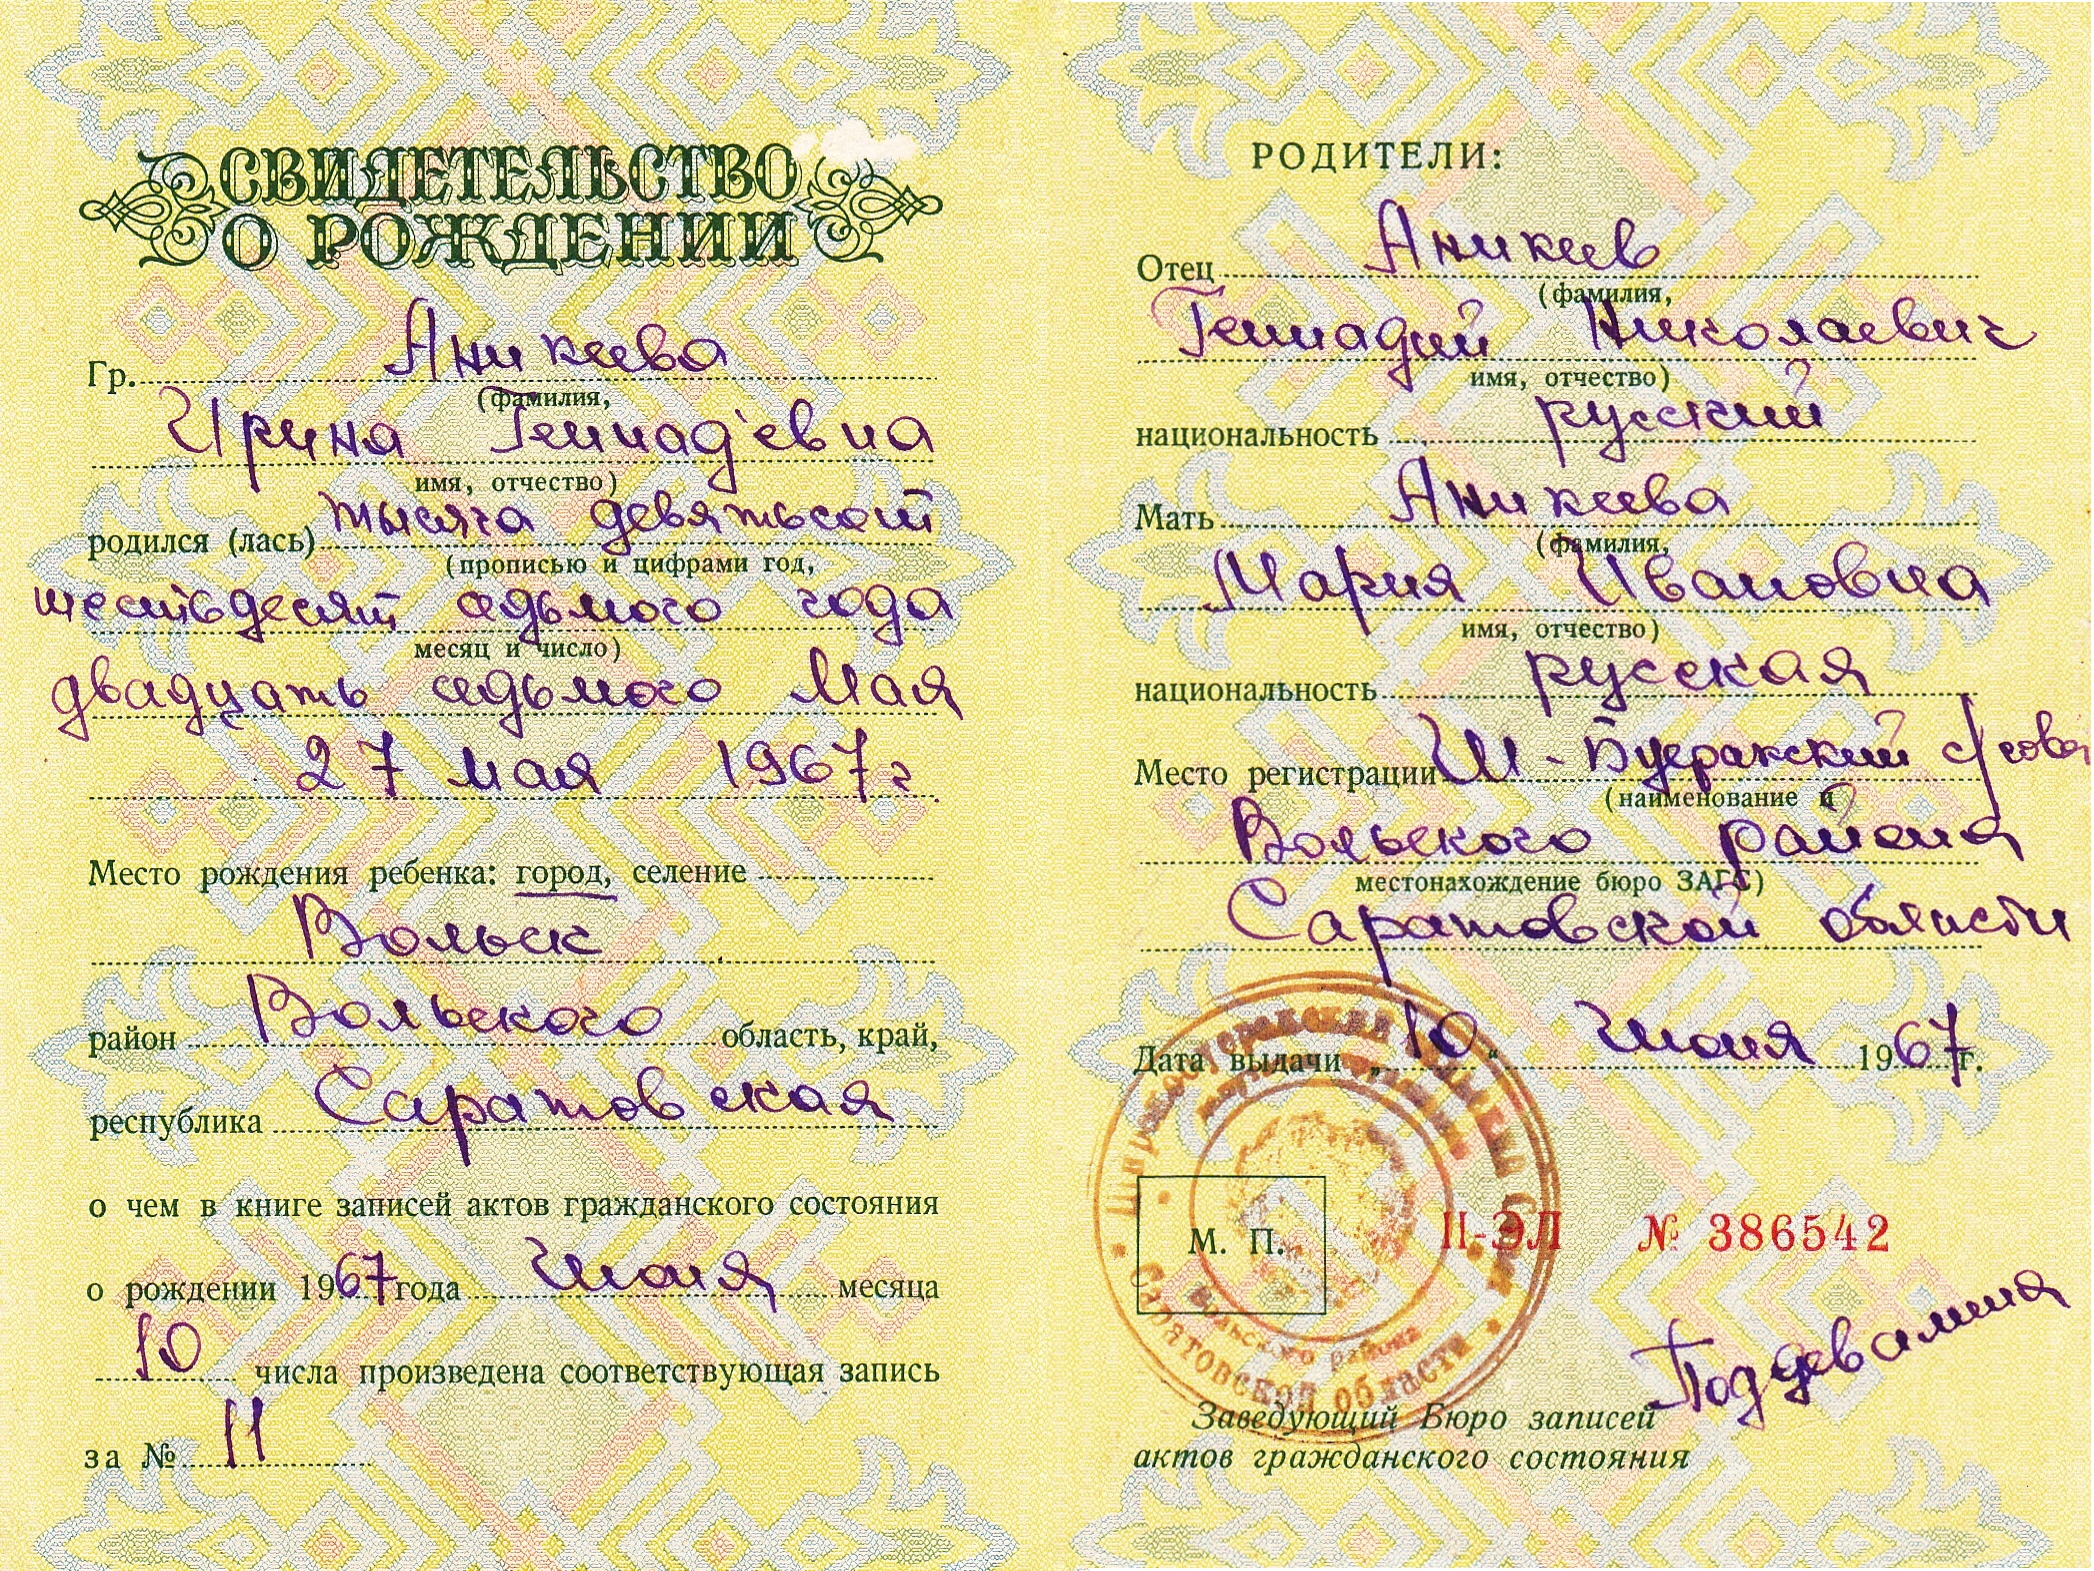 СВИДЕТЕЛЬСТВО
О РОЖДЕНИИ
Гр. Аникеева
(фамилия,
Ирина Геннадьевна
имя, отчество)
родился (лась) тысяча девятьсот
(прописью и цифрами год,
шестьдесят седьмого года
месяц и число)
двадцать седьмого Мая
27 мая 1967 г.
Место рождения ребенка: город, селение
Вольск
район Вольского область, край,
республика Саратовская
о чем в книге записей актов гражданского состояния
о рождении 1967 года Июня месяца
10 числа произведена соответствующая запись
за № 11
РОДИТЕЛИ:
Отец Аникеев
(фамилия,
Геннадий Николаевич
имя, отчество)
национальность русский
Мать Аникеева
(фамилия,
Мария Ивановна
имя, отчество)
национальность русская
Место регистрации Ш-Буеракский с/сове
(наименование и
Вольского района
местонахождение бюро ЗАГС)
Саратовской области
Дата выдачи „10“ Июня 1967 г.
Широкобуеракский сельский Совет
Вольского района
Саратовской области
М. П.
II-ЭЛ № 386542
Поддевалина
Заведующий Бюро записей
актов гражданского состояния